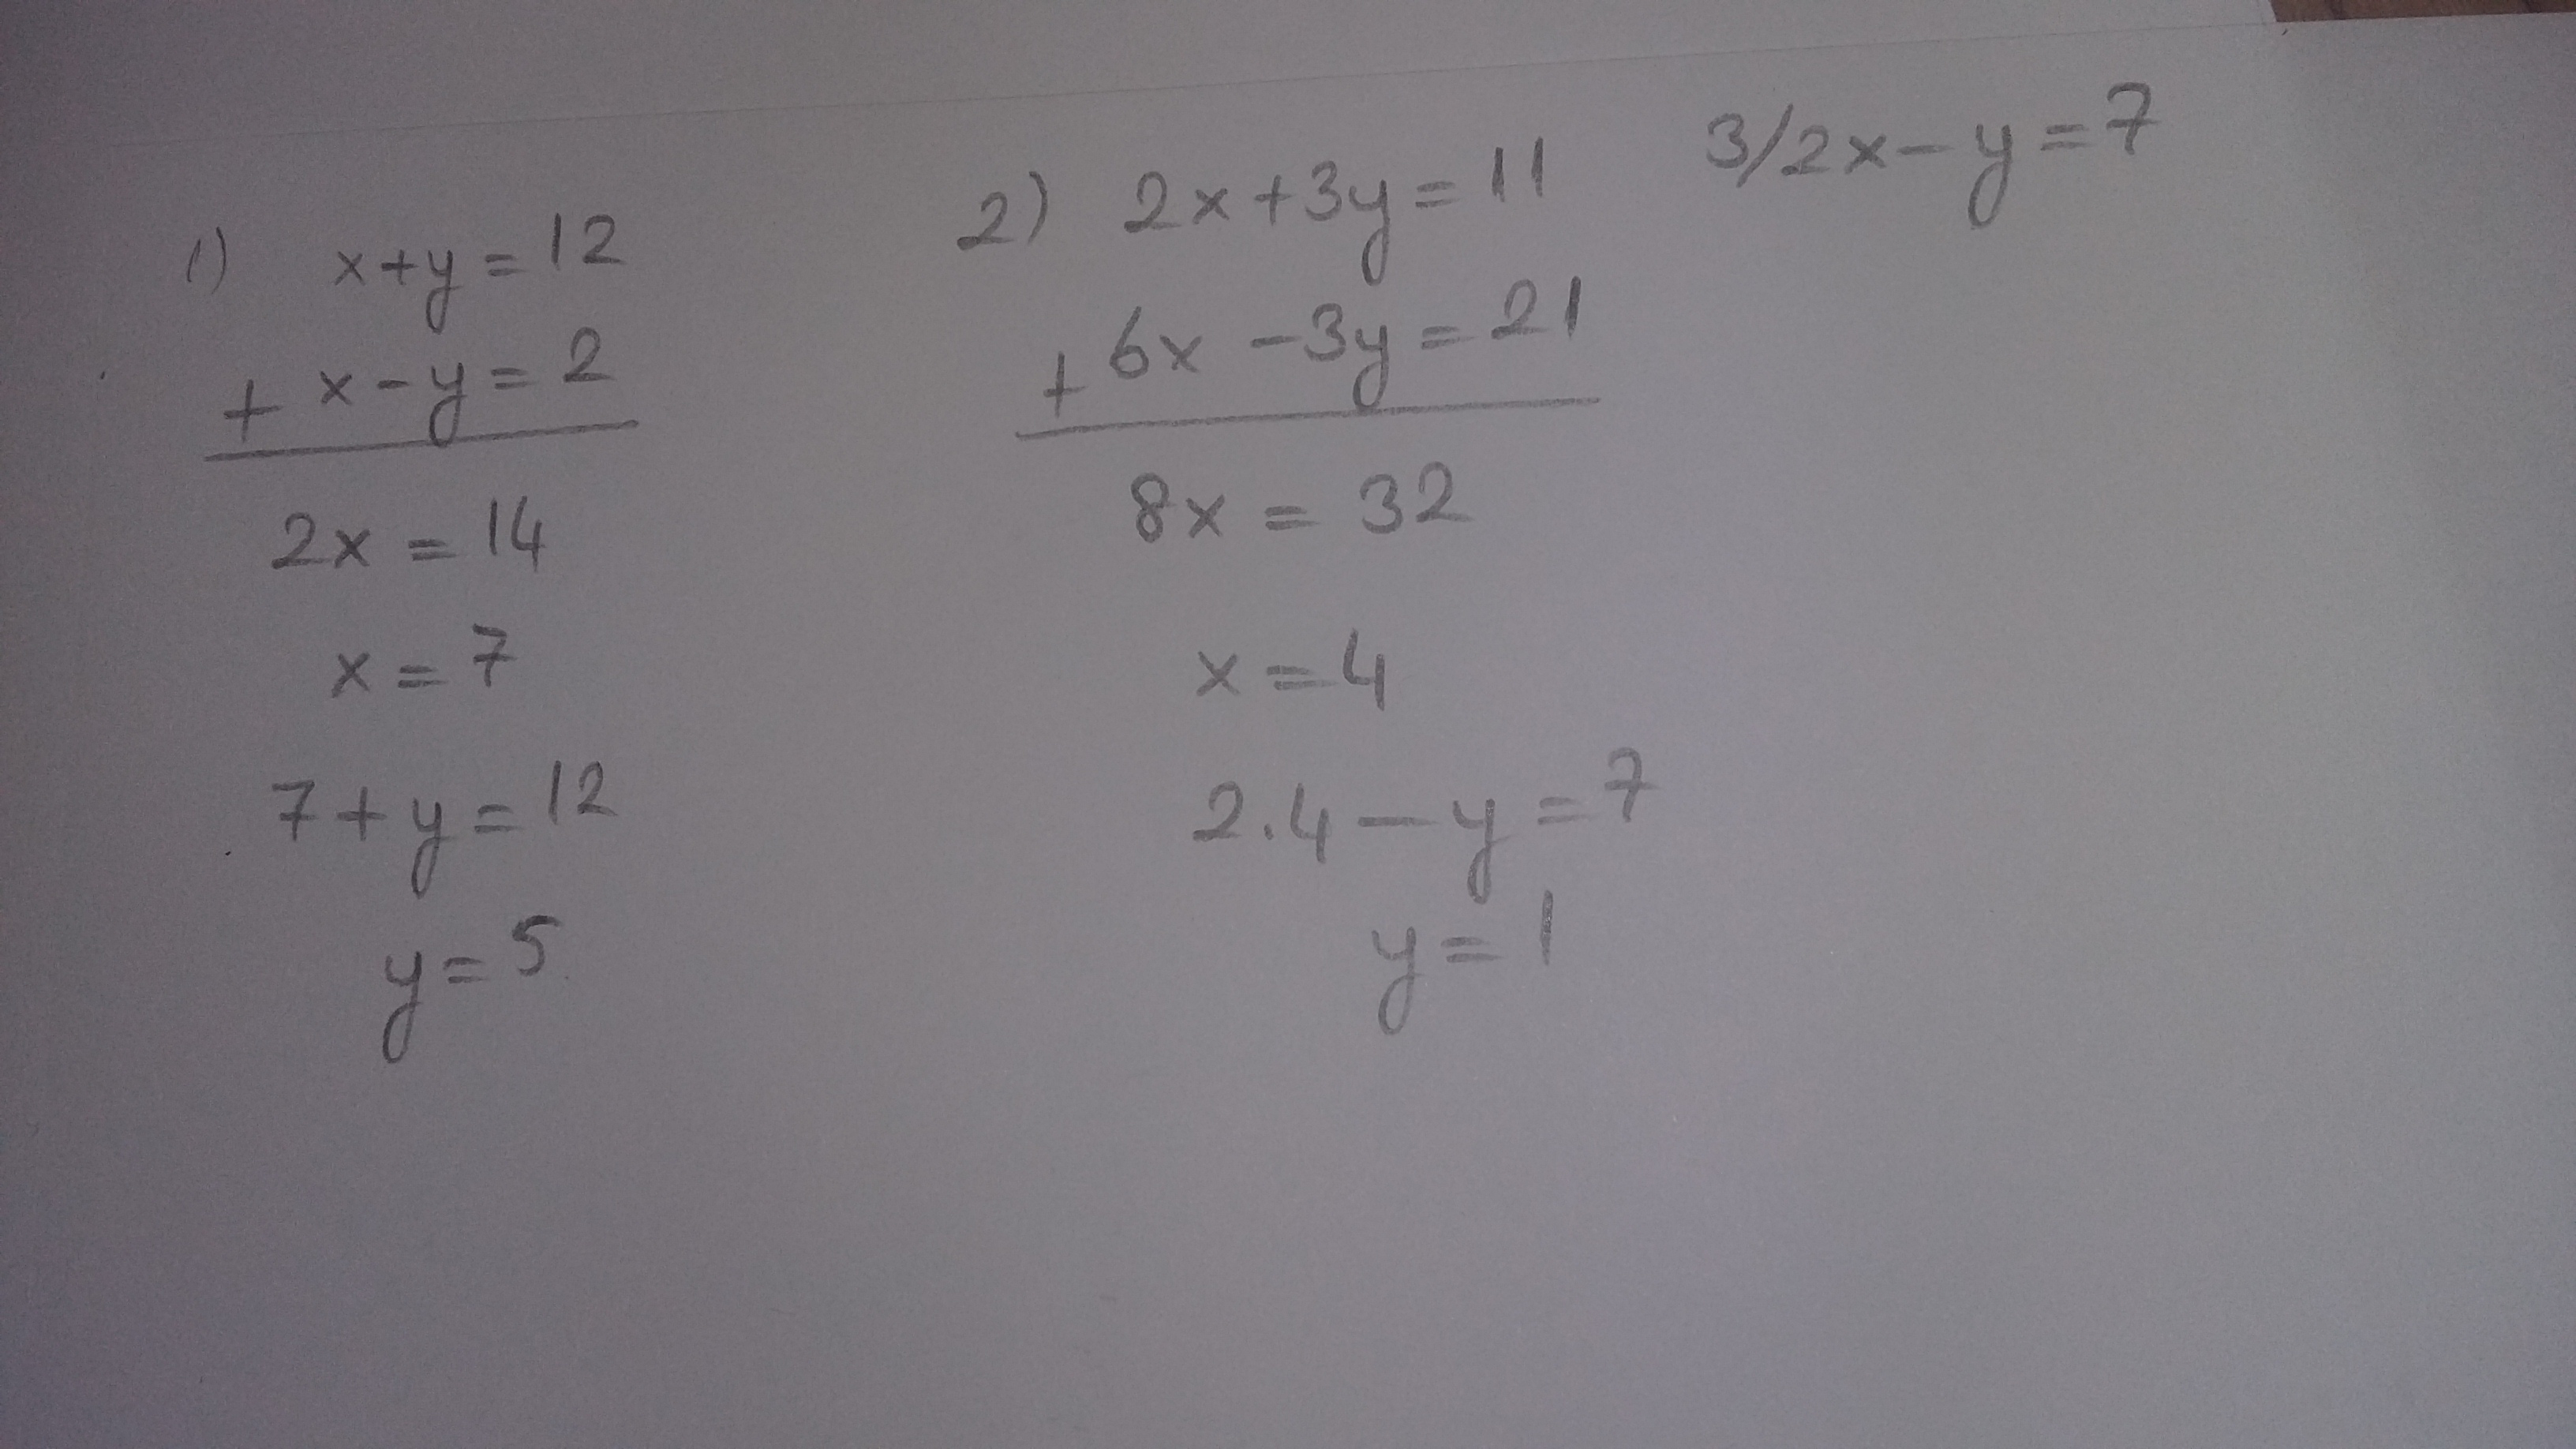 1) x+y=12
+ x-y=2
2x=14
x=7
7+y=12
y=5
2) 2x+3y=11 3/2x-y=7
+ 6x-3y=21
8x=32
x=4
2.4-y=7
y=1